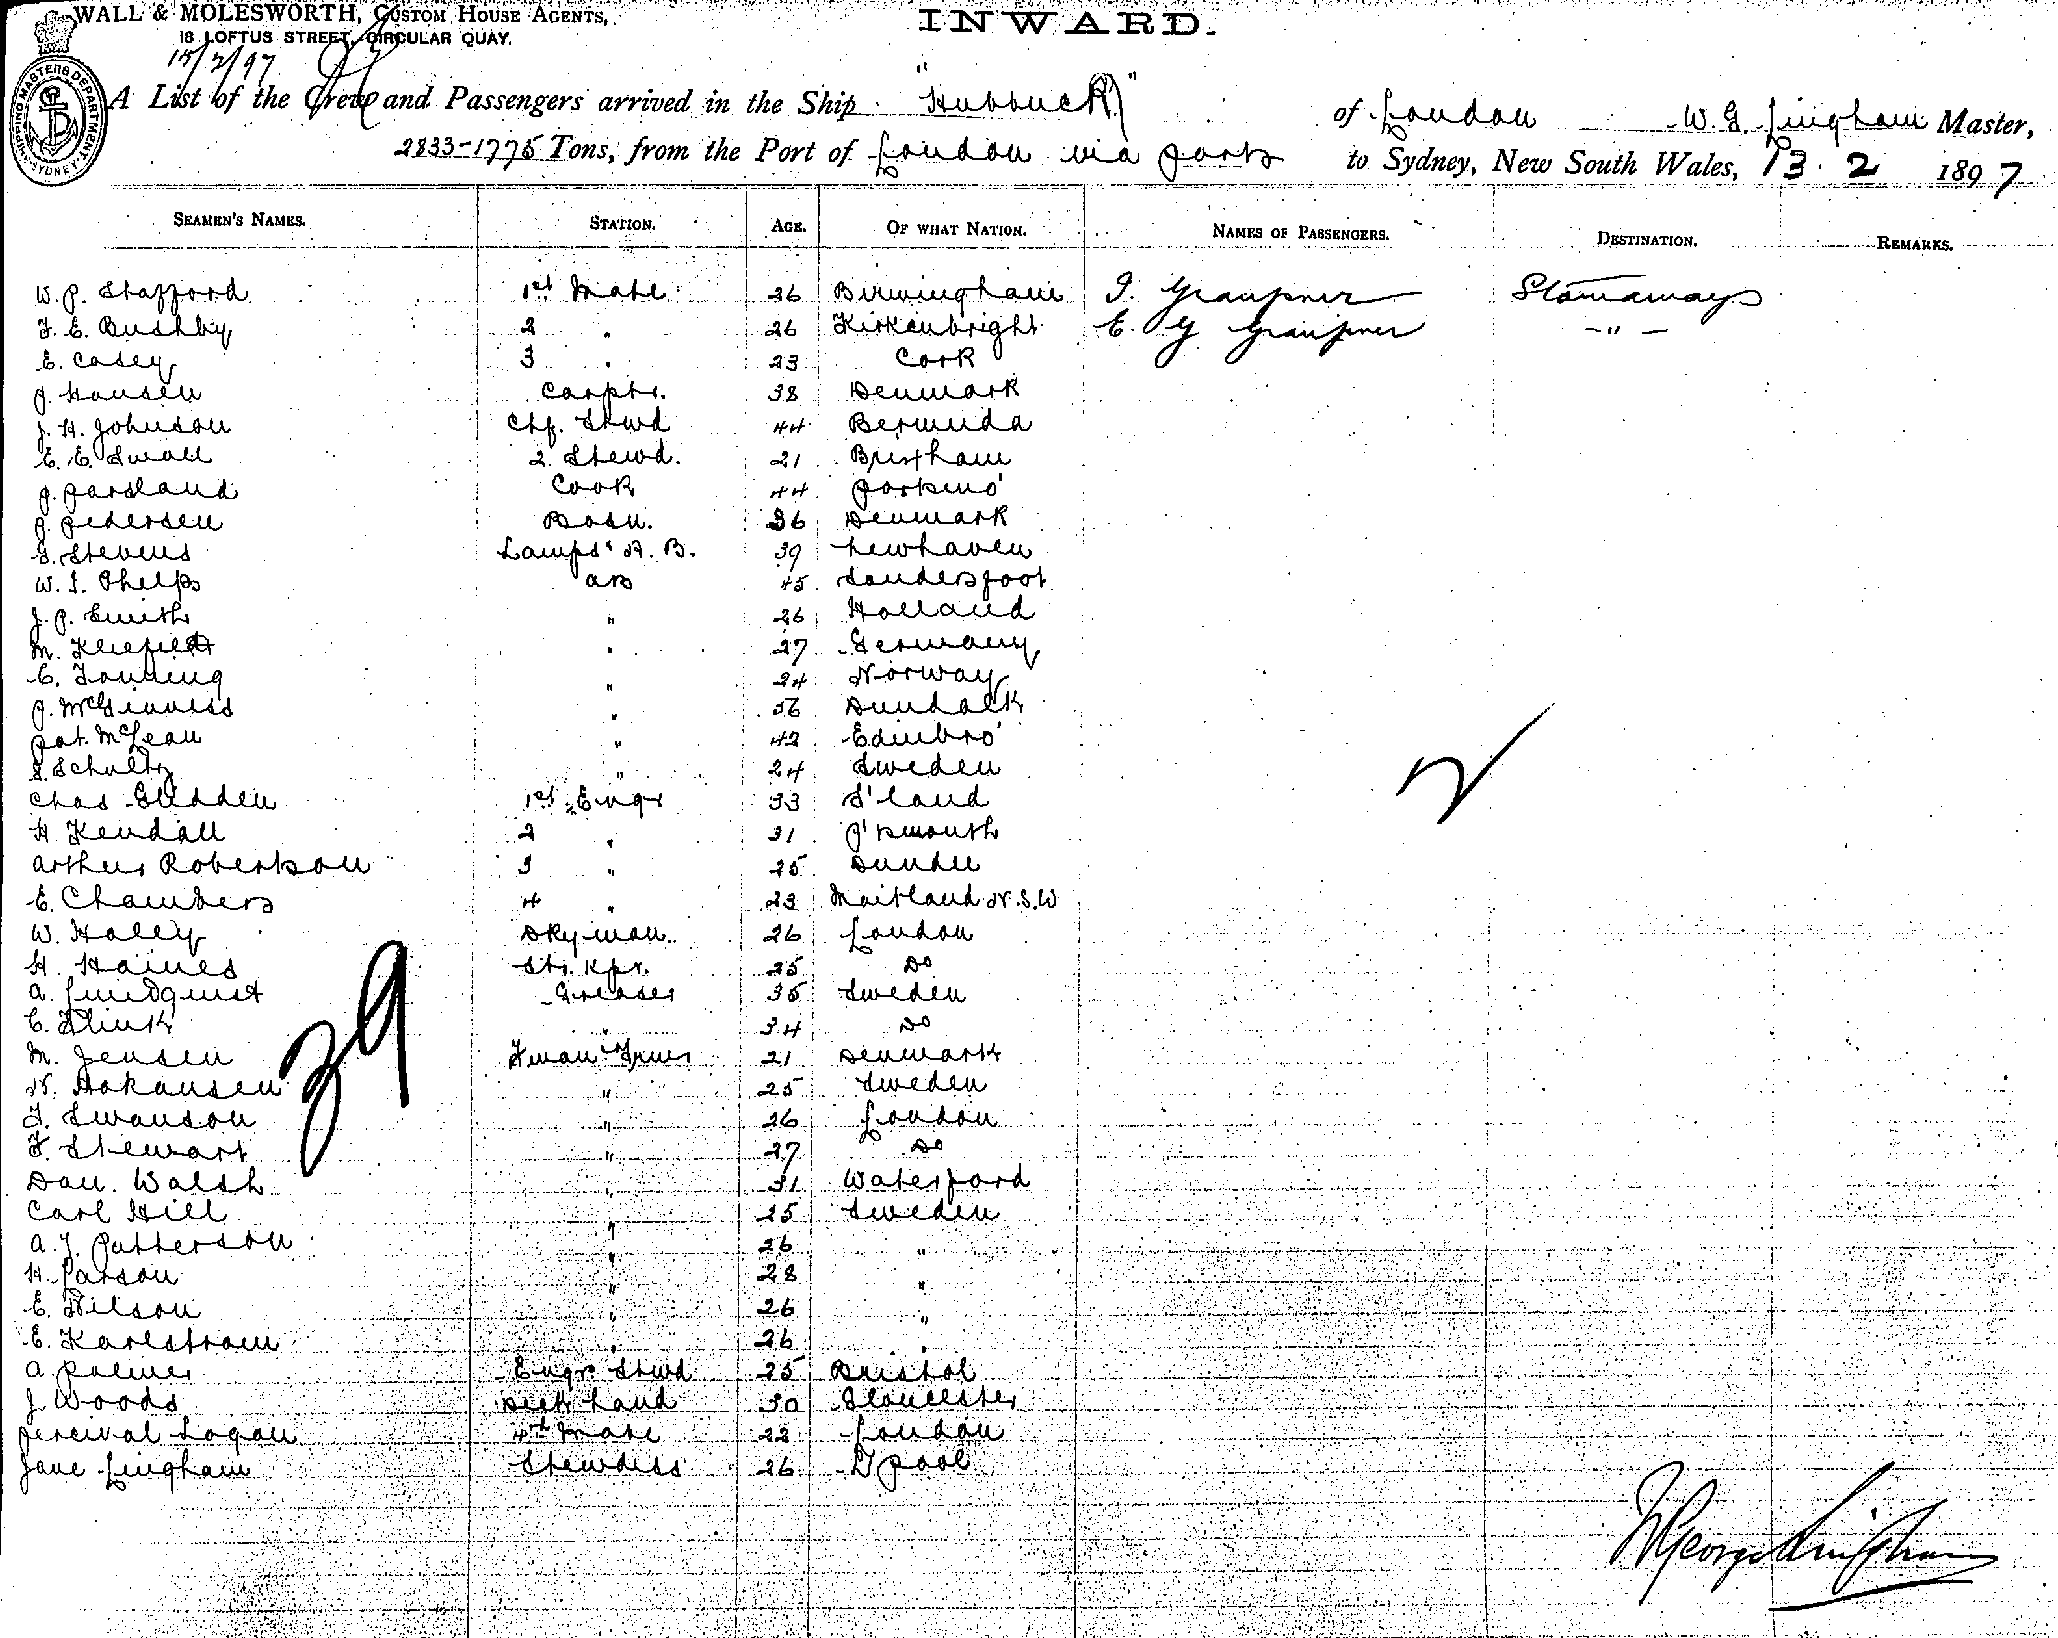 WALL & MOLESWORTH, CUSTOM HOUSE AGENTS,
18 LOFTUS STREET, CIRCULAR QUAY.
INWARD.
15/2/97
SHIPPING MASTERS DEPARTMENT. SYDNEY.
A List of the Crew and Passengers arrived in the Ship "Hubbuck" of London W. G. Lingham Master,
2833-1775 Tons, from the Port of London via ports to Sydney, New South Wales, 13. 2 1897
SEAMEN'S NAMES. STATION. AGE. OF WHAT NATION. NAMES OF PASSENGERS. DESTINATION. REMARKS.
W. P. Stafford 1st Mate 36 Birmingham J. Graupner Stowaways
F. E. Bushby 2 " 26 Kirkcubright E. G Graupner -"-
E. Casey 3 " 23 Cork
J. Hansen Carptr. 38 Denmark
J. H. Johnson Chf. Stwd 44 Bermuda
E. E. Small 2. Stewd. 21 Brixham
J. Parsland Cook 44
P. Pedersen Bosn. 36 Denmark
G. Stevens Lamps & A. B. 39 Newhaven
W. J. Phelps ABs 45 Saundersfoot
J. P. Smith " 26 Holland
M. " 27 Germany
C. " 24 Norway
J. McGinness " 56 Dundalk
Pat. McLean " 42 Edinbro'
S. Schultz " 24 Sweden
Chas Glidden 1st Engr 33 S'land
H Kendall 2 " 31 P'smouth
Arthur Robertson 3 " 25 Dundee
E. Chambers 4 " 23 Maitland N.S.W
W. Haley Dkyman 26 London
H. Haines Str. Kpr. 25 Do
A. Lundquist Greaser 35 Sweden
C. Flink " 34 Do
M. Jensen Fman & Trmr 21 Denmark
N. Hakansen " 25 Sweden
F. Swanson " 26 London
F. Stewart " 27 Do
Dan. Walsh " 31 Waterford
Carl Hill " 25 Sweden
A. J. Patterson " 26 "
H. Larson " 28 "
E. Nilson " 26 "
E. Karlstrom " 26 "
A Palmer Engrs Stwd 25 Bristol
J Woods Deck hand 30 Gloucester
Percival Logan 4th Mate 22 London
Jane Lingham Stewdess 26 L'pool
39
2
W George Lingham